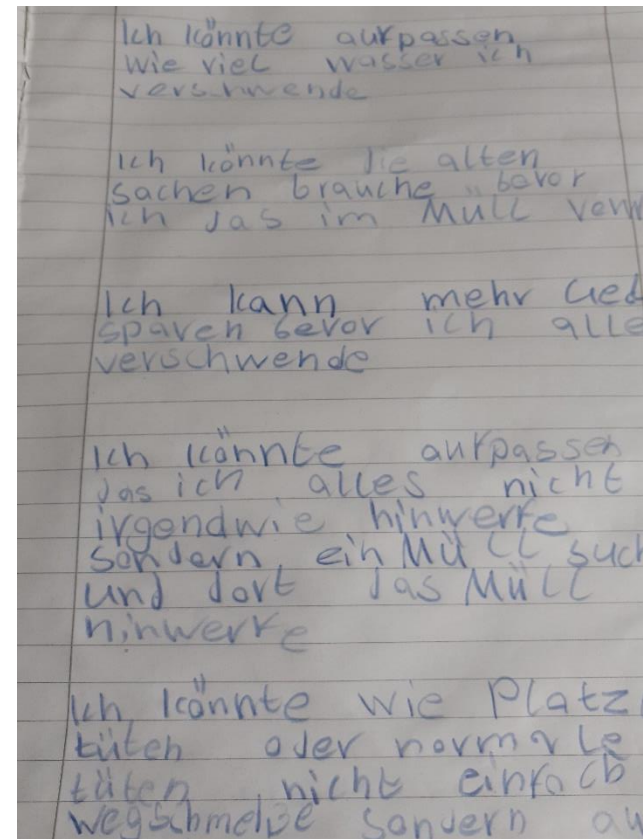 Ich könnte aufpassen
wie viel wasser ich
verschwende
ich könnte die alten
sachen brauche bevor
ich das im Müll
Ich kann mehr
sparen bevor ich alle
verschwende
Ich könnte aufpassen
das ich alles nicht
irgendwie hinwerfe
sondern ein Müll such
und dort das Müll
hinwerfe
Ich könnte wie Platz
tüten oder normale
tüten nicht einfach
sondern